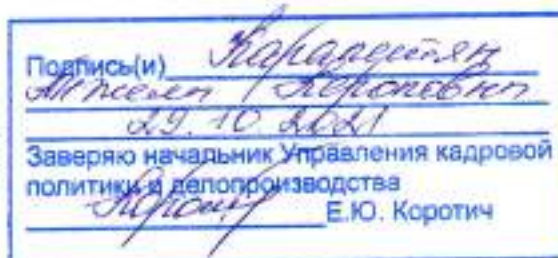 Подпись(и) Карапетян
Анжелы Кероповны
29.10.2021
Заверяю начальник Управления кадровой
политики и делопроизводства
Е.Ю. Коротич